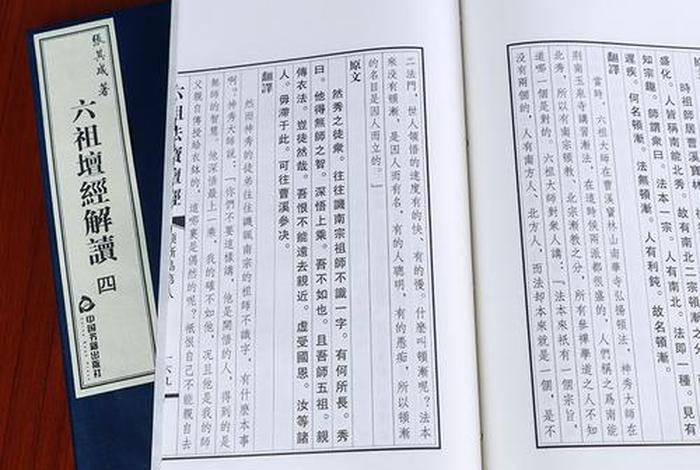 張其成 著
六祖壇經解讀 四
中国书籍出版社
時祖師居曹溪寶
盛化。人皆稱南能北秀。故有南北二宗頓漸
知宗趣。師謂眾曰。法本一宗。人有南北。法即一種。見有
遲疾。何名頓漸。法無頓漸。人有利鈍。故名頓漸。
翻譯
當時，六祖大師在曹溪寶林山南華寺弘揚頓法，神秀大師在
荊南玉泉寺講習漸法，在這時候兩派都很盛的，人們稱之爲南能
北秀，所以有南宗頓教、北宗漸教之分，所有參禪學道之人不知
道哪一個是對的。六祖大師對眾人講：『法本來祇有一個宗旨，
沒有兩個的，人有南方人、北方人，而法却本來就是一個，是不
二法門，世人領悟的速度有的快、有的慢。什麼叫頓漸呢？法本
來沒有頓漸，是因人而有名，有的人聰明，有的愚痴，所以頓漸
的名目是因人而立的。』
原文
然秀之徒眾。往往譏南宗祖師不識一字。有何所長。秀
曰。他得無師之智。深悟上乘。吾不如也。且吾師五祖。親
傳衣法。豈徒然哉。吾恨不能遠去親近。虛受國恩。汝等諸
人。毋滯于此。可往曹溪參決。
翻譯
然而神秀的徒弟往往譏諷南宗的祖師不識字，有什麼本事
啊？神秀大師說：『你們不要這樣講，他是開悟的人，得到的是
無師的智慧。他深悟最上一乘，我的確不如他，況且他是我的師
父親自傳授給衣鉢的，這哪裏是偶然的呢？祇恨自己不能親自去
六祖法寶壇經
頓漸品第八
一六九